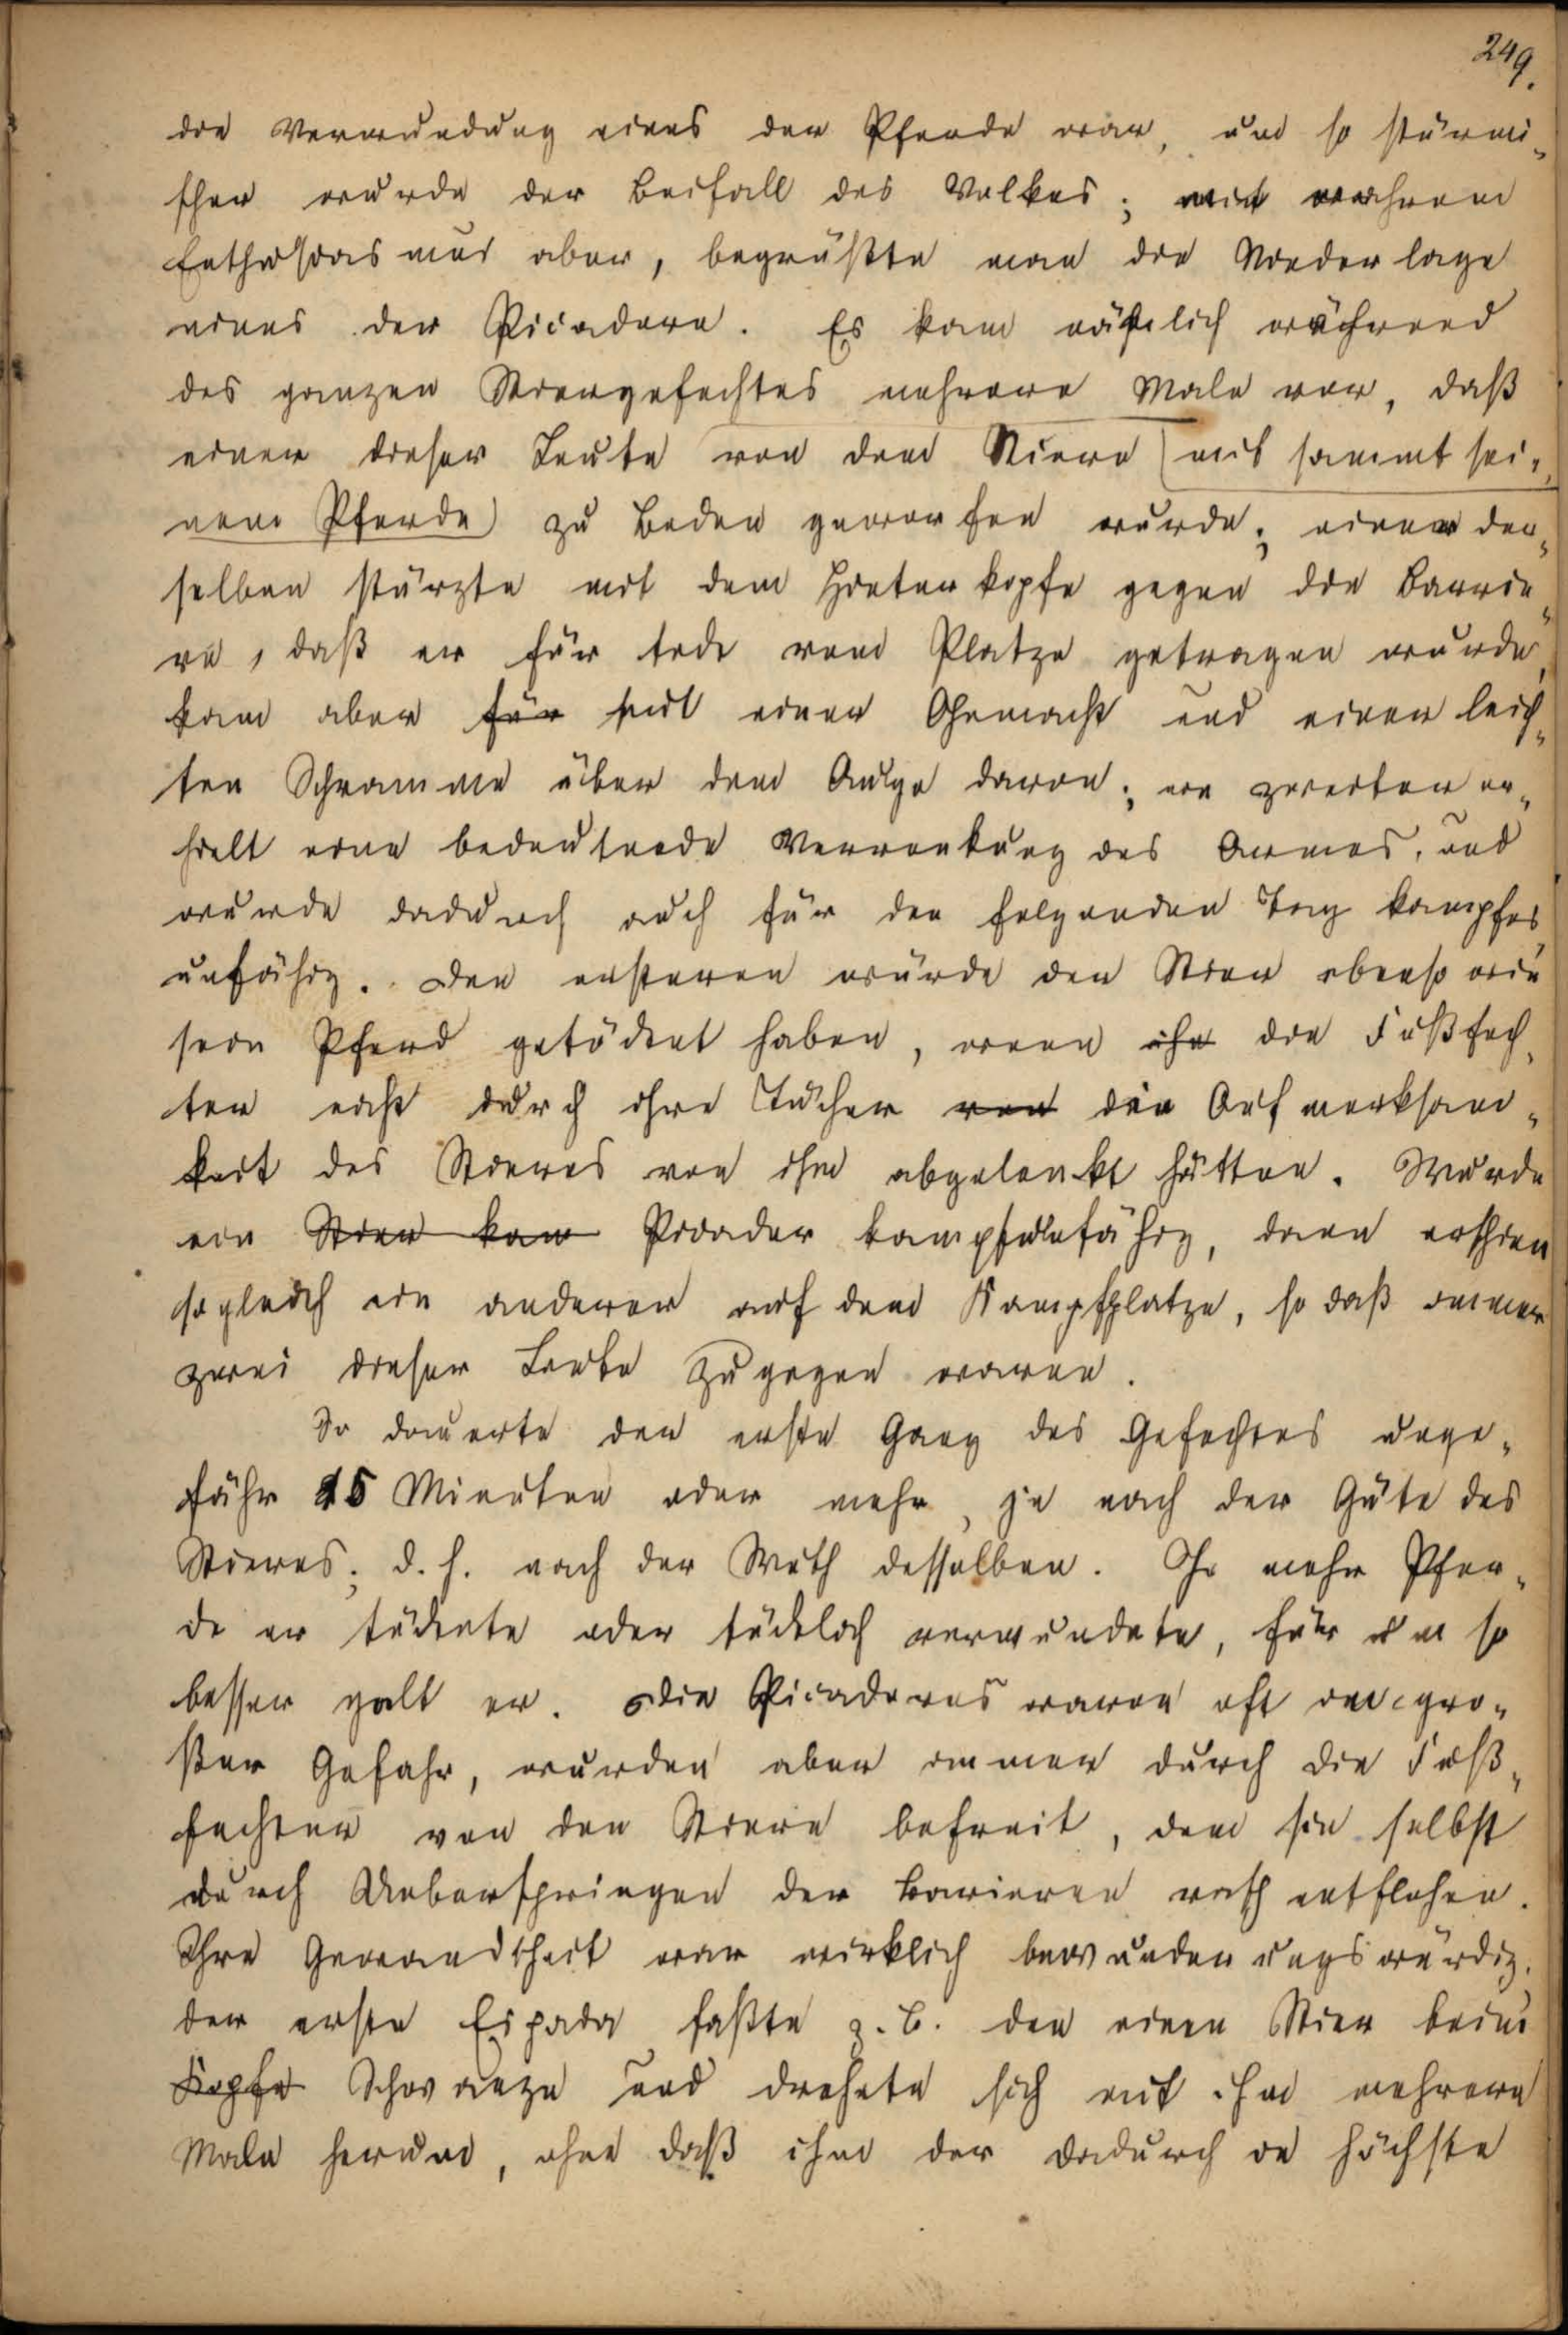 249.
die Verwundung eines der Pferde war, und so stürmi„
scher wurde der Beifall des Volkes; mit wahrem
Enthusiasmus aber, begrüßte man die Niederlage
eines der Picadore. Es kam nämlich während
des ganzen Stiergefechtes mehrere Male vor, daß
einer dieser Leute von dem Stiere (mit sammt sei„
nem Pferde) zu Boden geworfen wurde; einer der„
selben stürzte mit dem Hinterkopfe gegen die Barrie„
re, daß er für tod vom Platze getragen wurde,
kam aber für mit einer Ohnmacht und einer leich„
ten Schramme über dem Auge davon; ein zweiter er„
hielt eine bedeutende Verrenkung des Armes, und
wurde dadurch auch für den folgenden Tag kampfes
unfähig. Den ersteren würde der Stier ebenso wie
sein Pferd getödtet haben, wenn ihn die Fußfech„
ter nicht durch ihre Tücher von die Aufmerksam„
keit des Stieres von ihm abgelenkt hätten. Wurde
ein Stier kam Picador kampfunfähig, dann erschien
sogleich ein anderer auf dem Kampfplatze, so daß immer
zwei dieser Leute zugegen waren.
So dauerte der erste Gang des Gefechtes unge„
fähr 15 Minuten oder mehr, je nach der Güte des
Stieres; d. h. nach der Wuth desselben. Je mehr Pfer„
de er tödtete oder tödtlich verwundete, für um so
besser galt er. Die Picadores waren oft in gro„
ßer Gefahr, wurden aber immer durch die Fuß„
fechter von dem Stiere befreit, dem sie selbst
durch Ueberspringen der Barieren rasch entflohen.
Ihre Gewandtheit war wirklich bewunderungswürdig.
der erste Espada faßte z. B. den einen Stier beim
Kopfe Schwanze und drehete sich mit ihm mehrere
Male herum, ohne daß ihm der dadurch in höchste